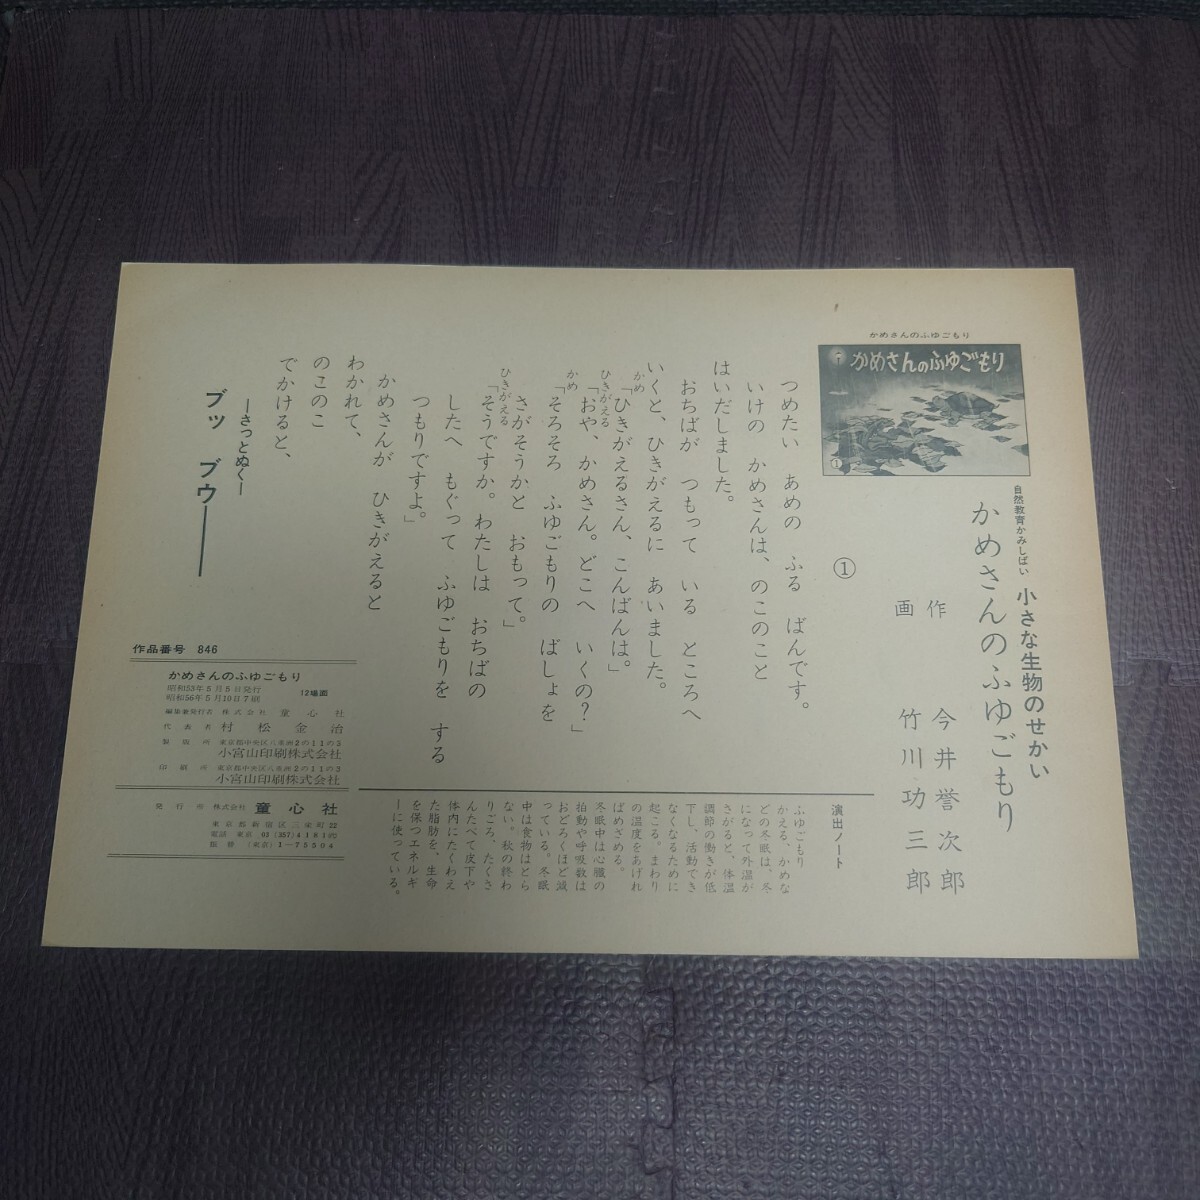 かめさんのふゆごもり
かめさんのふゆごもり
①
自然教育かみしばい 小さな生物のせかい
かめさんのふゆごもり
作 今井誉次郎
画 竹川功三郎
①
つめたい あめの ふる ばんです。
いけの かめさんは、のこのこと
はいだしました。
おちばが つもって いる ところへ
いくと、ひきがえるに あいました。
かめ「ひきがえるさん、こんばんは。」
ひきがえる「おや、かめさん。どこへ いくの?」
かめ「そろそろ ふゆごもりの ばしょを
さがそうかと おもって。」
ひきがえる「そうですか。わたしは おちばの
したへ もぐって ふゆごもりを する
つもりですよ。」
かめさんが ひきがえると
わかれて、
のこのこ
でかけると、
―さっとぬく―
ブッ ブウ――
演出ノート
ふゆごもり
かえる、かめな
どの冬眠は、冬
になって外温が
さがると、体温
調節の働きが低
下し、活動でき
なくなるために
起こる。まわり
の温度をあげれ
ばめざめる。
冬眠中は心臓の
拍動や呼吸数は
おどろくほど減
っている。冬眠
中は食物はとら
ない。秋の終わ
りごろ、たくさ
んたべて皮下や
体内にたくわえ
た脂肪を、生命
を保つエネルギ
ーに使っている。
作品番号 846
かめさんのふゆごもり
昭和53年5月5日発行 12場面
昭和56年5月10日7刷
編集兼発行者 株式会社 童心社
代表者 村松金治
製版所 東京都中央区八重洲2の11の3
小宮山印刷株式会社
印刷所 東京都中央区八重洲2の11の3
小宮山印刷株式会社
発行所 株式会社 童心社
東京都新宿区三栄町22
電話 東京 03 (357) 4181㈹
振替 (東京) 1-75504